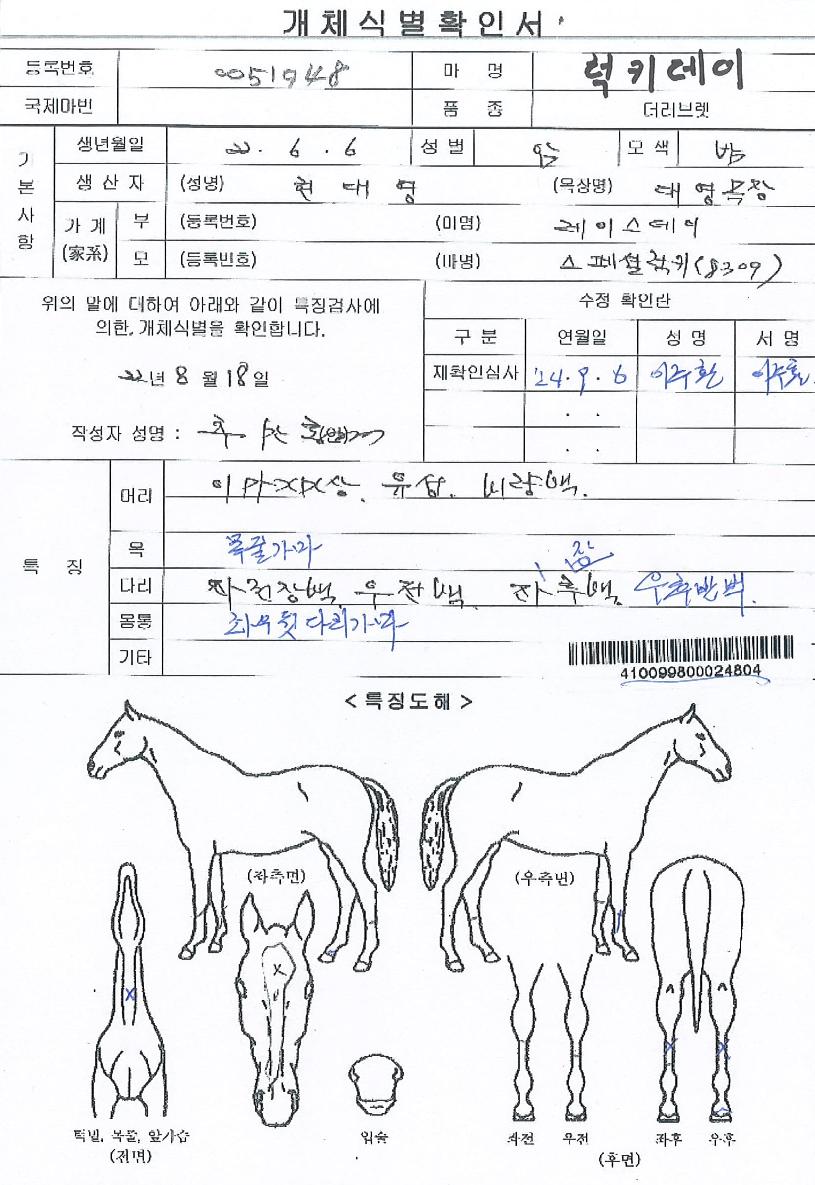 개체식별확인서
등록번호 0051948 마명 럭키데이
국제마번 품종 더러브렛
기본사항
생년월일 22. 6. 6 성별 암 모색 밤
생산자 (성명) 현대영 (목장명) 대영목장
가계(家系) 부 (등록번호) (마명) 레이스데이
모 (등록번호) (마명) 스페셜럭키(8309)
위의 말에 대하여 아래와 같이 특징검사에
의한, 개체식별을 확인합니다.
22년 8월 18일
작성자 성명 :
수정 확인란
구분 연월일 성명 서명
재확인심사 '24. 9. 6 이주환 이주환
특징
머리 이마자상, 유성, 비량백.
목 목줄가마
다리 좌전장백, 우전백, 좌후장백, 우후반백.
몸통 좌우뒷다리가마
기타
410099800024804
<특징도해>
(좌측면) (우측면)
턱밑, 목줄, 앞가슴
(전면)
입술
좌전 우전 좌후 우후
(후면)